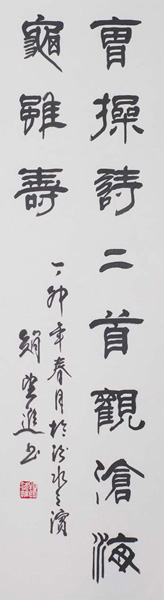 曹操詩二首觀滄海
龜雖壽
丁卯年春月於汾水之濱
趙望進書